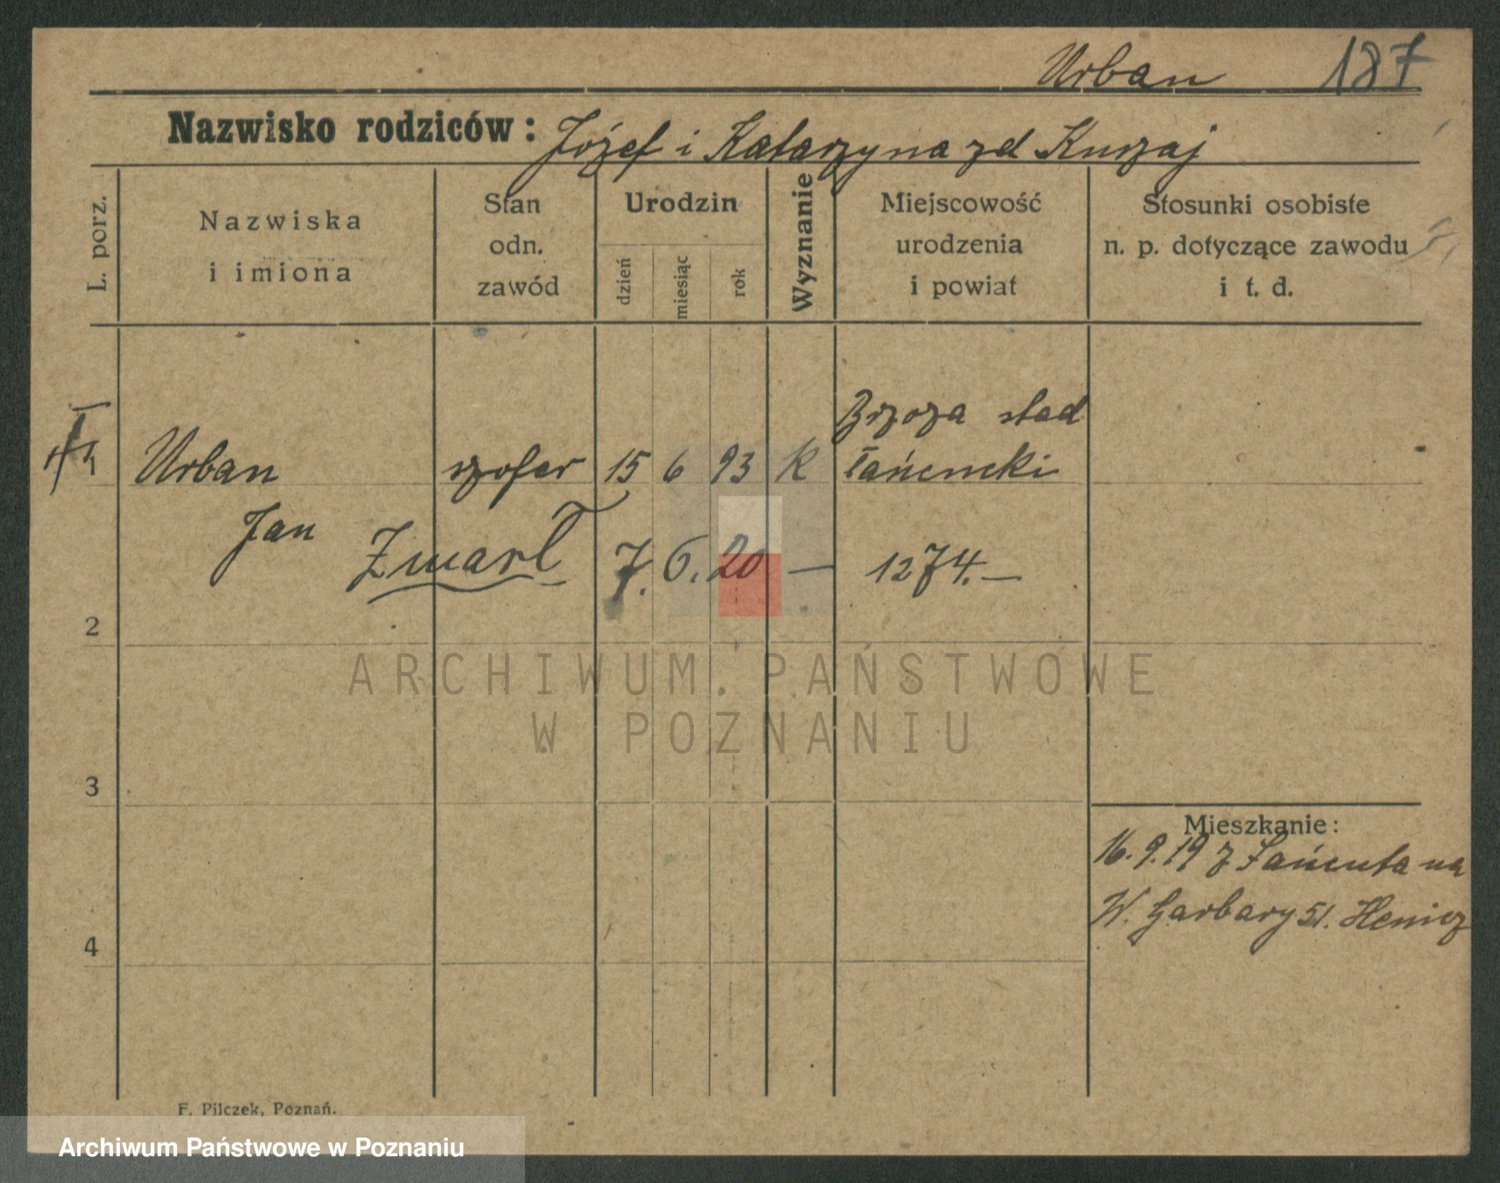 Urban 187
Nazwisko rodziców: Józef i Katarzyna zd Kurzaj
L. porz.
Nazwiska
i imiona
Stan
odn.
zawód
Urodzin
dzień
miesiąc
rok
Wyznanie
Miejscowość
urodzenia
i powiat
Stosunki osobiste
n. p. dotyczące zawodu
i t. d.
1 Urban szofer 15 6 93 k Brzoza stad
łańcucki
Jan
Zmarł 7. 6. 20 — 1274.—
2
3
4
Mieszkanie:
16.9.19 z Łańcuta na
W. Garbary 51. Henicz
F. Pilczek, Poznań.
ARCHIWUM PAŃSTWOWE
W POZNANIU
Archiwum Państwowe w Poznaniu